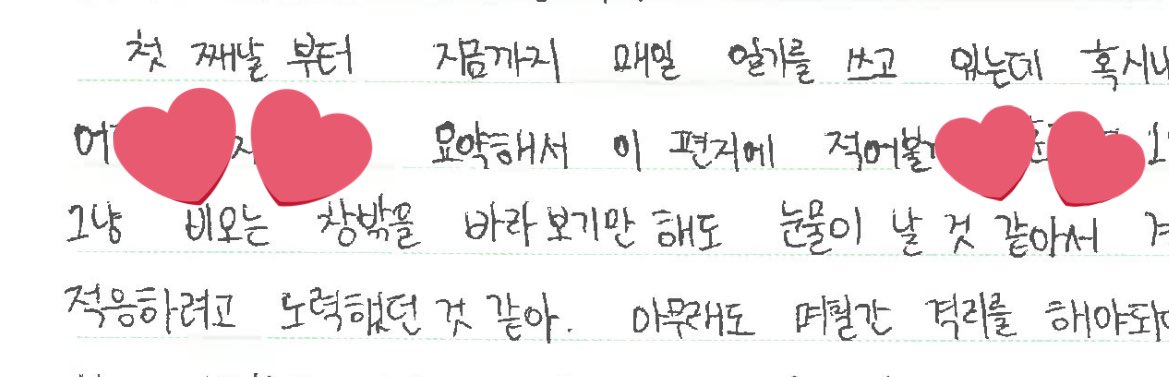 첫 째날 부터 지금까지 매일 일기를 쓰고 있는데 혹시나
요약해서 이 편지에 적어볼
그냥 비오는 창밖을 바라보기만 해도 눈물이 날 것 같아서
적응하려고 노력했던 것 같아. 아무래도 며칠간 격리를 해야되